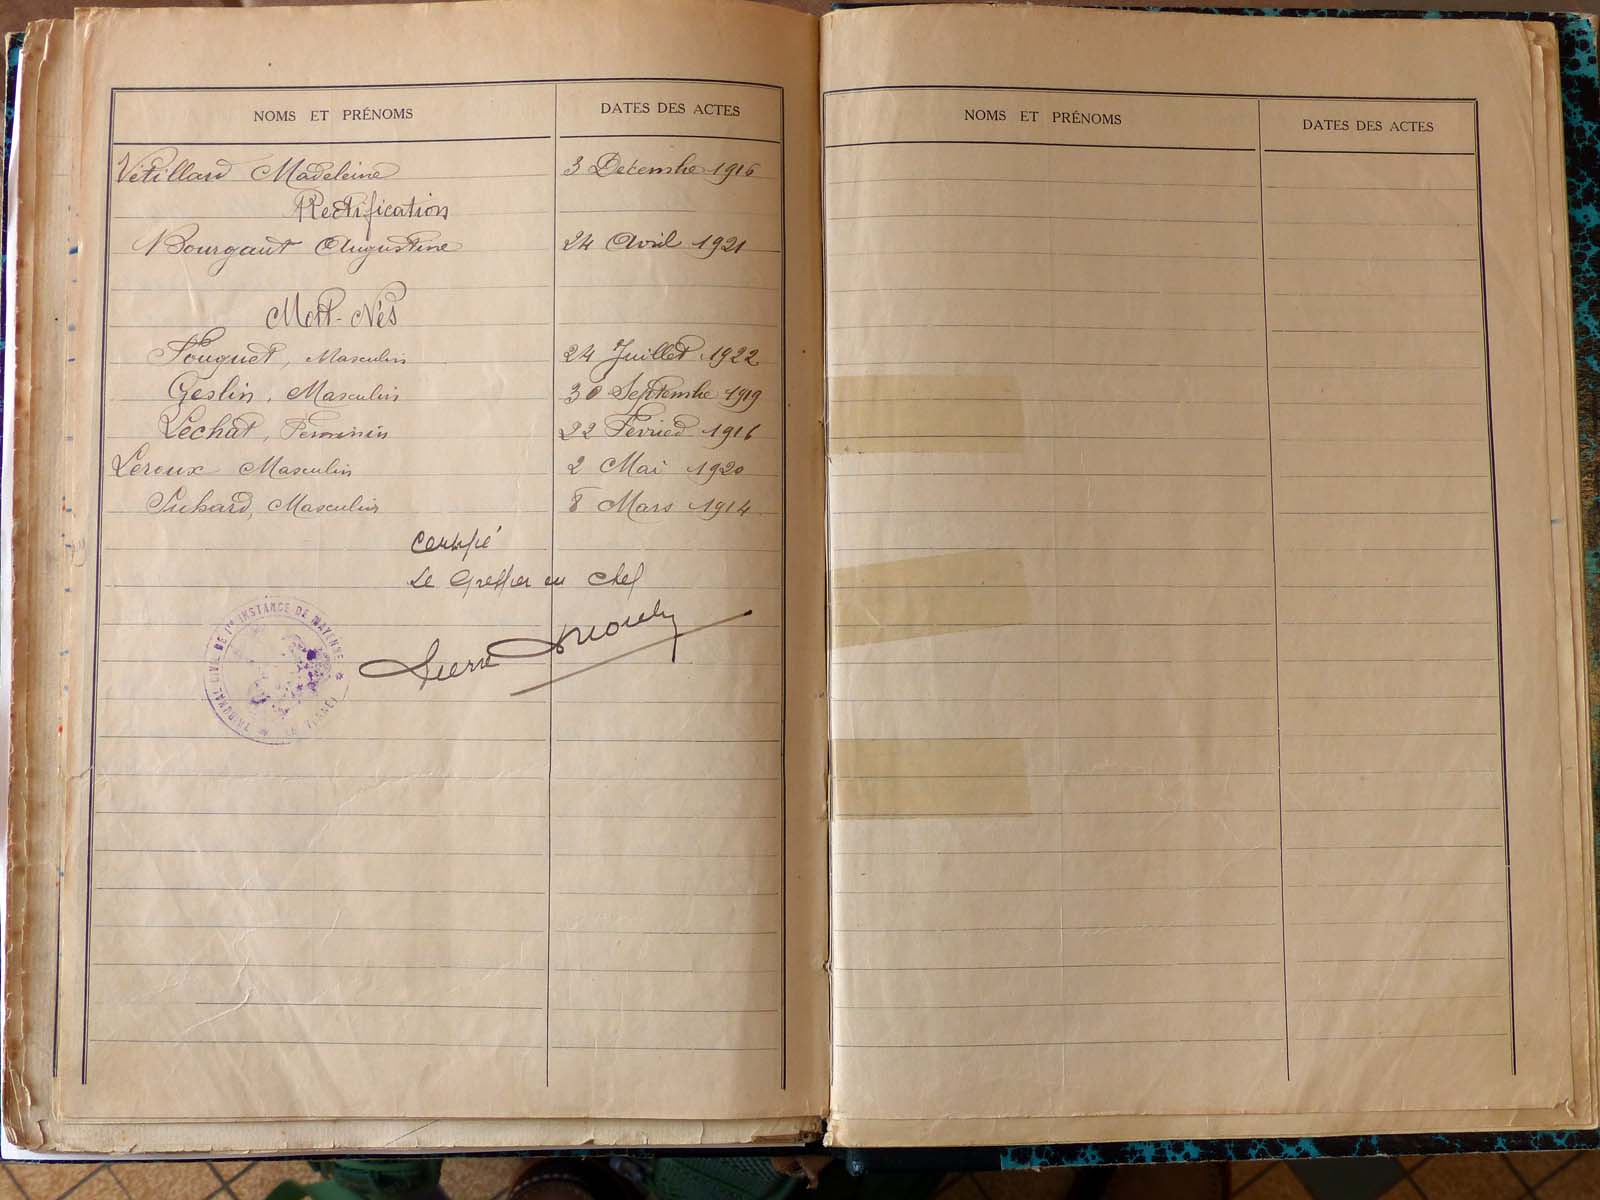 NOMS ET PRÉNOMS DATES DES ACTES
Vétillard Madeleine 3 Décembre 1916
Rectification
Bourgaut Augustine 24 Avril 1921
Mort-Nés
Fouquet, Masculin 24 Juillet 1922
Geslin, Masculin 30 Septembre 1919
Lechat, Feminin 22 Février 1916
Leroux Masculin 2 Mai 1920
Masculin 8 Mars 1914
Certifié
Le Greffier en Chef
Pierre
TRIBUNAL CIVIL DE 1re INSTANCE DE MAYENNE
NOMS ET PRÉNOMS DATES DES ACTES